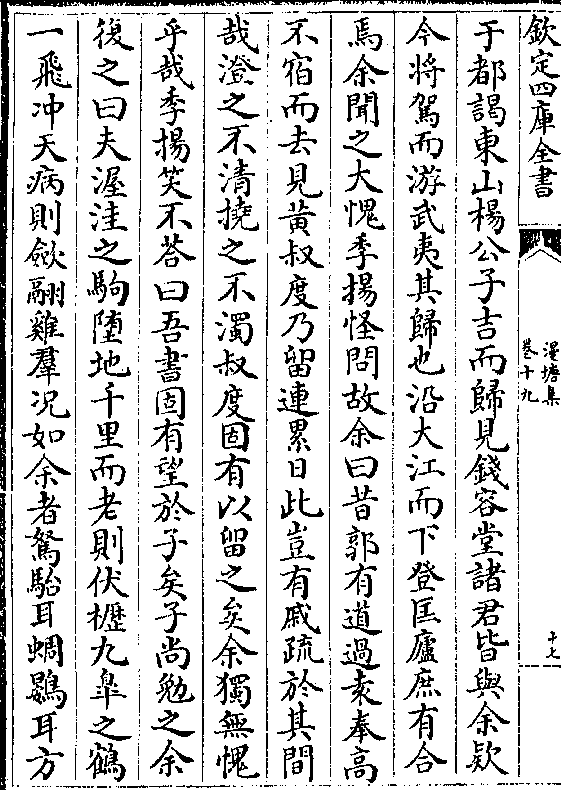 欽定四庫全書
漫塘集
卷十九
十七
于都謁東山楊公子吉而歸見錢容堂諸君皆與余欵
今將駕而游武夷其歸也沿大江而下登匡廬庶有合
焉余聞之大愧季揚怪問故余曰昔郭有道過袁奉高
不宿而去見黄叔度乃留連累日此豈有戚疏於其間
哉澄之不清撓之不濁叔度固有以留之矣余獨無愧
乎哉季揚笑不答曰吾書固有望於子矣子尚勉之余
復之曰夫渥洼之駒墮地千里而老則伏櫪九臯之鶴
一飛冲天病則歛翮雞羣况如余者駑駘耳蜩鷃耳方